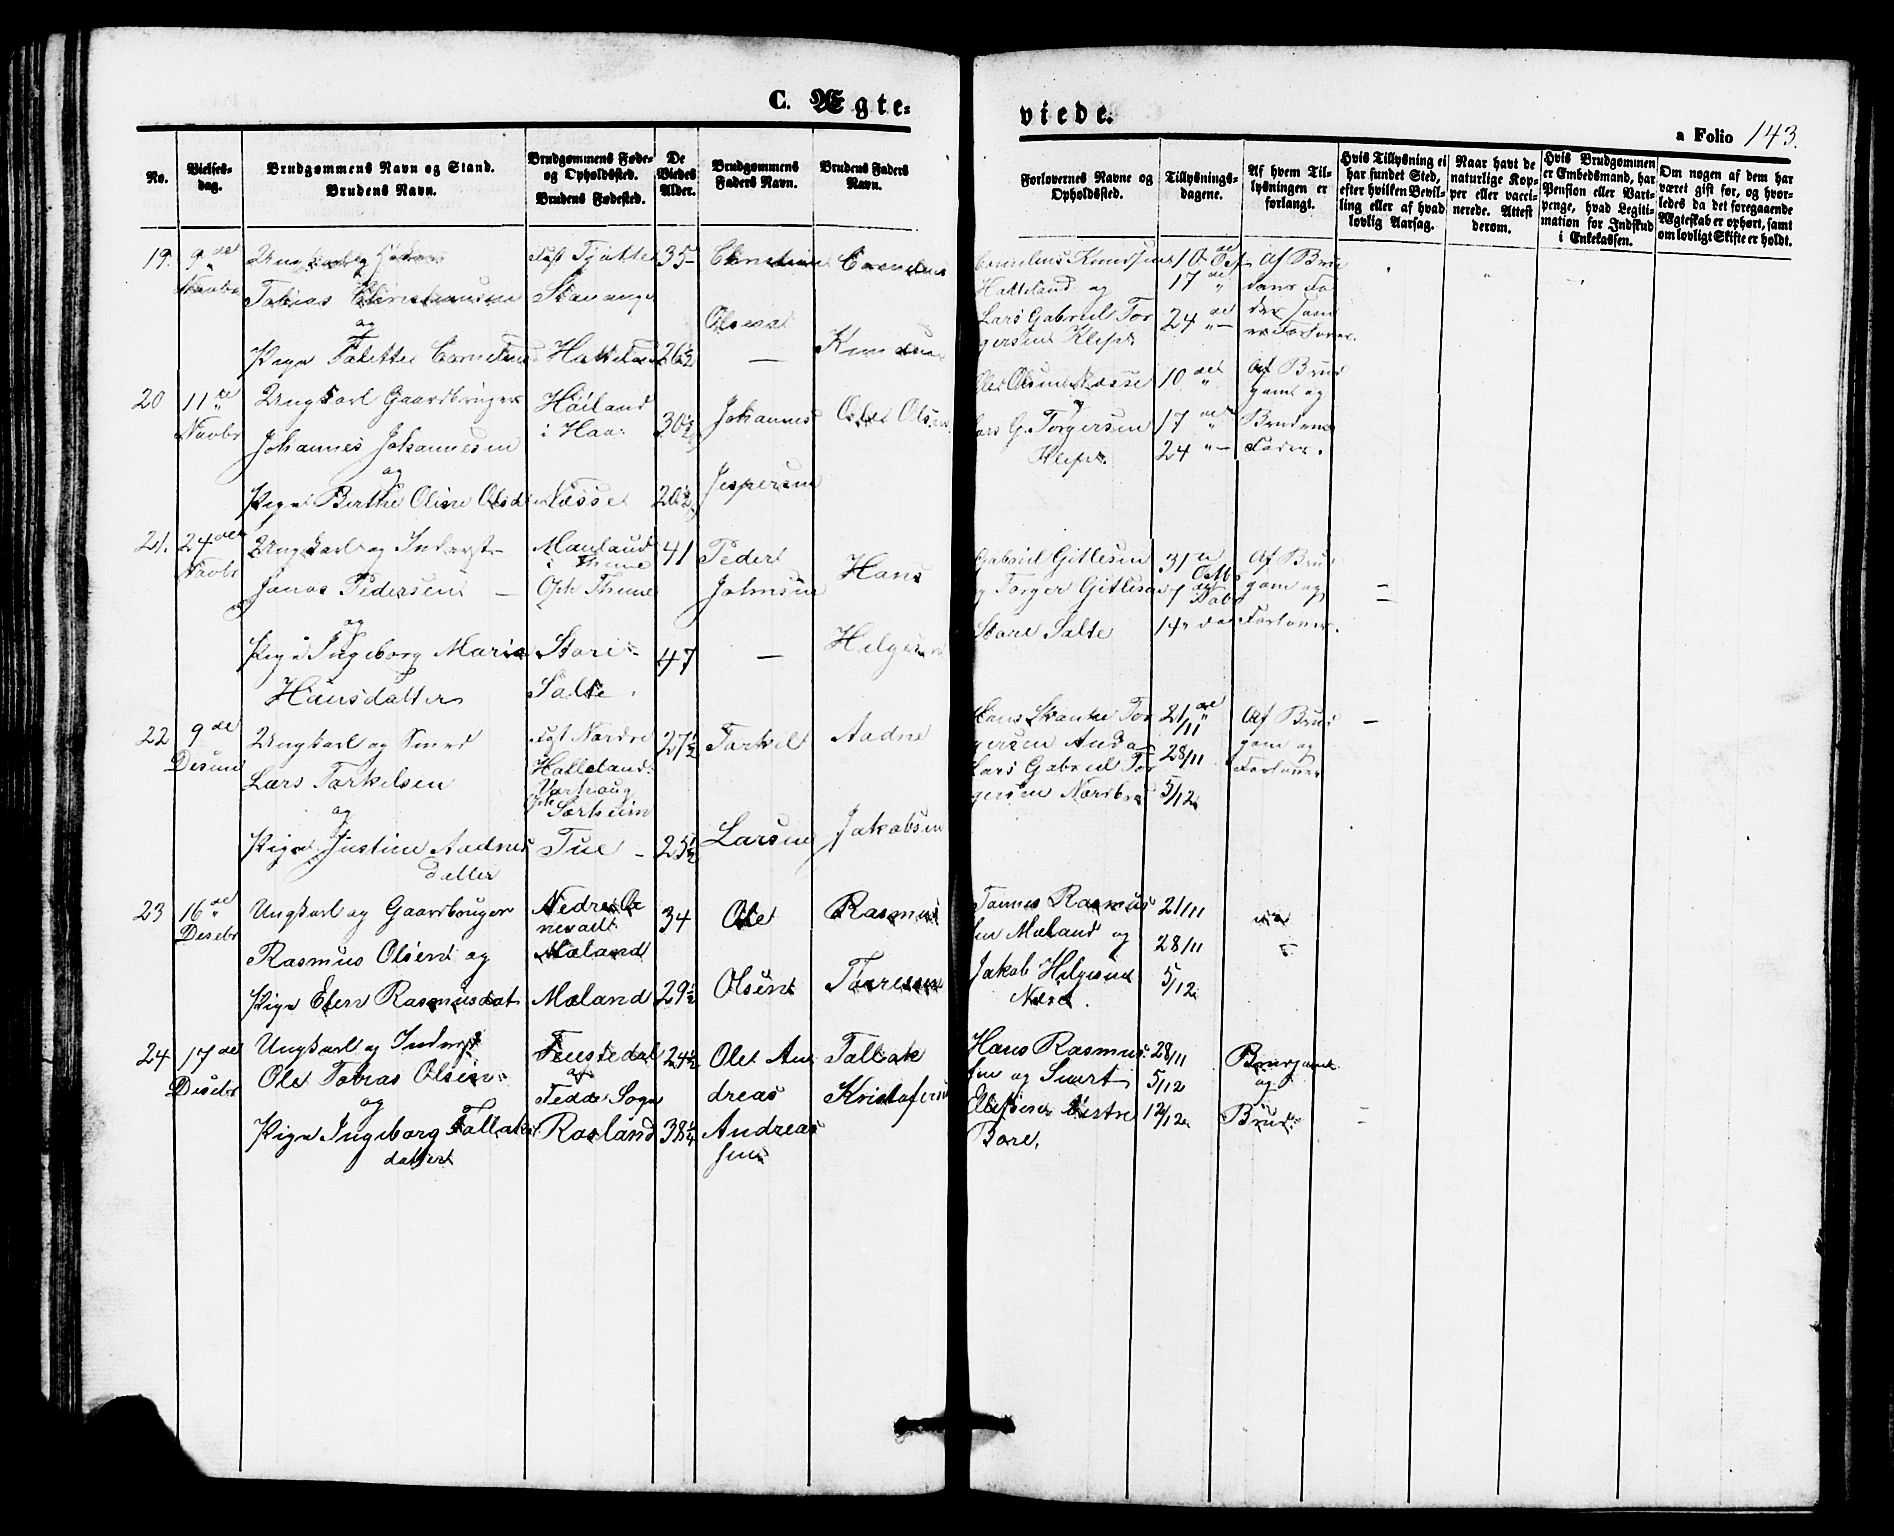 C. Ægte=
viede.
a Folio 143.
No.
Vielses-
dag.
Brudgommens Navn og Stand.
Brudens Navn.
Brudgommens Føde-
og Opholdssted.
Brudens Fødested.
De
Viedes
Alder.
Brudgommens
Faders Navn.
Brudens Faders
Navn.
Forlovernes Navne og
Opholdssted.
Tillysnings-
dagene.
Af hvem Til-
lysningen er
forlangt.
Hvis Tillysning ei
har fundet Sted,
efter hvilken Bevil-
ling eller af hvad
lovlig Aarsag.
Naar havt de
naturlige Kop-
per eller vacci-
nerede. Attest
derom.
Hvis Brudgommen
er Embedsmand, har
Pension eller Vart-
penge, hvad Legiti-
mation for Indskud
i Enkekassen.
Om nogen af dem har
været gift før, og hvor-
ledes da det foregaaende
Ægteskab er ophørt, samt
om lovligt Skifte er holdt.
19. 9de Novbr
Ungkarl og
Tobias Christiansen
og
Pige Cornelius
Stavange
Hatteland
35
26½
Christian
Olsen
—
Cornelius
Knudsen
Cornelius Knudsen
Hatteland og
Lars Gabriel Tor
gersen Klep
10de Oct
17de "
24de "
Af Bru
dens Fa
der sam
Forlover
20 11te Novbr
Ungkarl Gaardbruger
Johannes Johannesen
og
Pige Berthe Oline Olsd
Høiland
i Haa
Næsse
30½
20½
Johannes
Jespersen
Ole Olsen
Ole Olsen Næsse
og
Lars G. Torgersen
Klep.
10de "
17de "
24 " —
Af Brud
gom og
Brudens
Fader.
21. 24de Novbr
Ungkarl og Inderst
Jonas Pedersen —
og
Pige Ingeborg Maria
Hansdatter
i Thime
Oph Thime
Store
Salte
41
47
Peder
Johnsen
—
Hans
Helgesen
Gabriel Gitlesen
og Torger Gitlesen
Store Salte
31te Octbr
7de Novbr
14 " do
Af Brud
gom og
Forlover.
=
22 9de Desem
Ungkarl og Smed
Lars Torkelsen
og
Pige Justine Aadnes
datter
Født Nordre
Hatteland
Varhaug
Oph Sørheim
Tue —
27½
25½
Torkel
Larsen
Aadne
Jakobsen
Hans Skanke Tor
gersen Anda
Lars Gabriel Tor
gersen Nærbø
21/11 "
28/11
5/12
Af Brud
gom og
Forlover
—
23 16de Desebr
Ungkarl og Gaardbruger
Rasmus Olsen og
Pige Elen Rasmusdat
Nedre
Mæland
Mæland
34
29½
Ole
Olsen
Rasmus
Tøresen
Tønnes Rasmus
sen Mæland og
Jakob Helgesen
Nære.
21/11
28/11
5/12
24 17de Desebr
Ungkarl og Inderst
Ole Tobias Olsen
og
Pige Ingeborg Tollaks
datter
Sogn
Rosland
24½
38¼
Ole An
dreas
Andreas
sen
Tollak
Kristofersen
Hans Rasmus
sen og Sivert
Ellefsen Vestre
Bore.
28/11
5/12
12/12
Brudgom
og
Brud
=